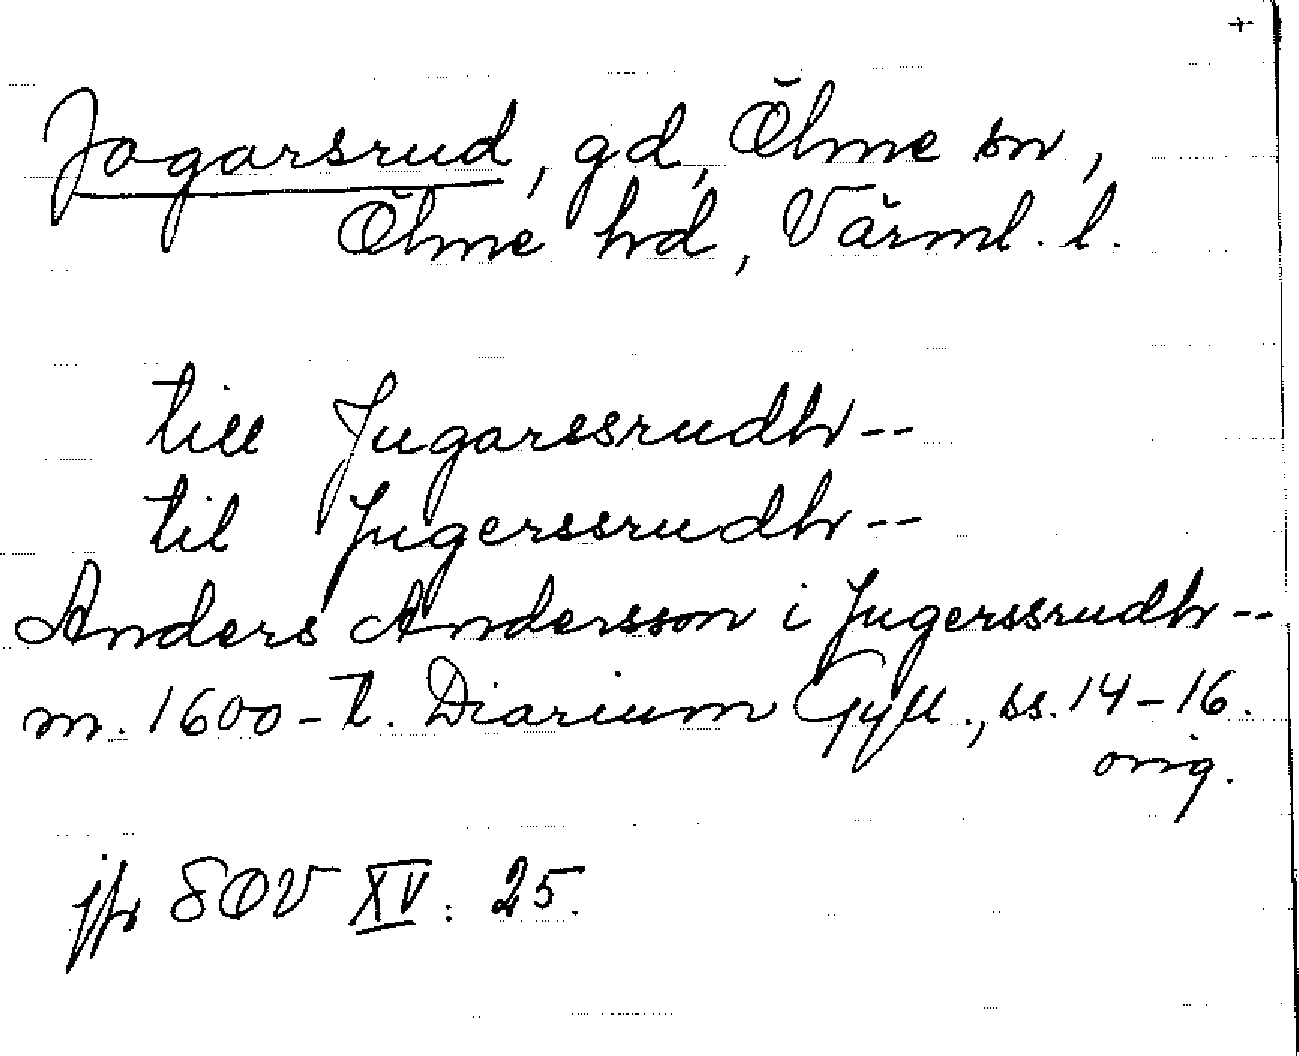 +
Jogarsrud, gd, Ölme sn,
Ölme hd, Värml. l.
till Jugarssrudh--
til Jugerssrudh--
Anders Andersson i Jugerssrudh--
m. 1600-t. Diarium Gyll., ss. 14-16.
orig.
jfr SOV XV: 25.